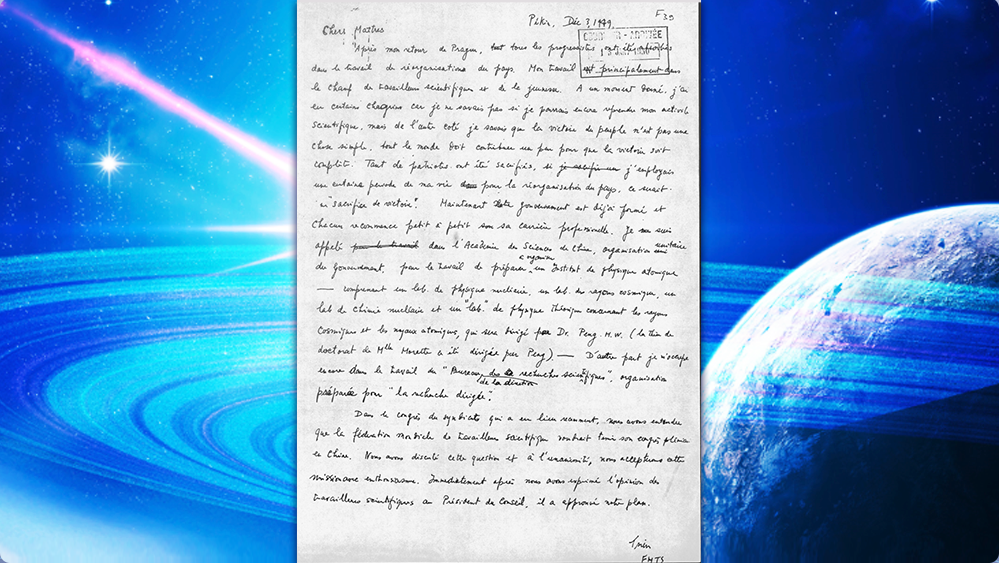 F 35
Pékin, Déc 3, 1949.
Chers Maîtres
Après mon retour de Prague, tout tous les progressistes ont été
dans le travail de réorganisation du pays. Mon travail est principalement dans
le champ de travailleurs scientifiques et de la jeunesse. A un moment donné, j'ai
eu certains chagrins car je ne savais pas si je pourrais encore reprendre mon activité
scientifique, mais de l'autre coté je savais que la victoire du peuple n'est pas une
chose simple, tout le monde doit contribuer un peu pour que la victoire soit
complète. Tant de patriotes ont été sacrifiés, si j'employais
une certaine periode de ma vie pour la réorganisation du pays, ce serait
un "sacrifice de victoire". Maintenant gouvernement est déjà formé et
chacun recommence petit à petit sa carrière professionnelle. Je suis
appelé pour le travail dans l'Académie des Sciences de Chine, organisation unitaire
du Gouvernement, pour le travail de préparer à organiser un Institut de physique atomique
— comprenant un lab. de physique nucléaire, un lab. de rayons cosmiques, un
lab de chimie nucléaire et un "lab." de physique théorique concernant les rayons
cosmiques et les noyaux atomiques, qui sera dirigé par Dr. Peng H.W. (la thèse de
doctorat de Mlle Morette a été dirigée par Peng) — D'autre part je m'occupe
encore dans le travail du "Bureau de la direction des recherches scientifiques", organisation
préparée pour "la recherche dirigée".
Dans le congrès du syndicats qui a eu lieu récemment, nous avons entendu
que la fédération mondiale de travailleurs scientifiques voudrait tenir son congrès plénier
en Chine. Nous avons discuté cette question et à l'unanimité, nous accepterons cette
mission avec enthousiasme. Immédiatement après nous avons exprimé l'opinion des
travailleurs scientifiques au Président du Conseil, il a approuvé notre plan.
Tsien
FMTS